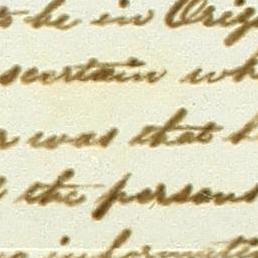 to be in Orig
scertain wh
r was that h
the persons
informati